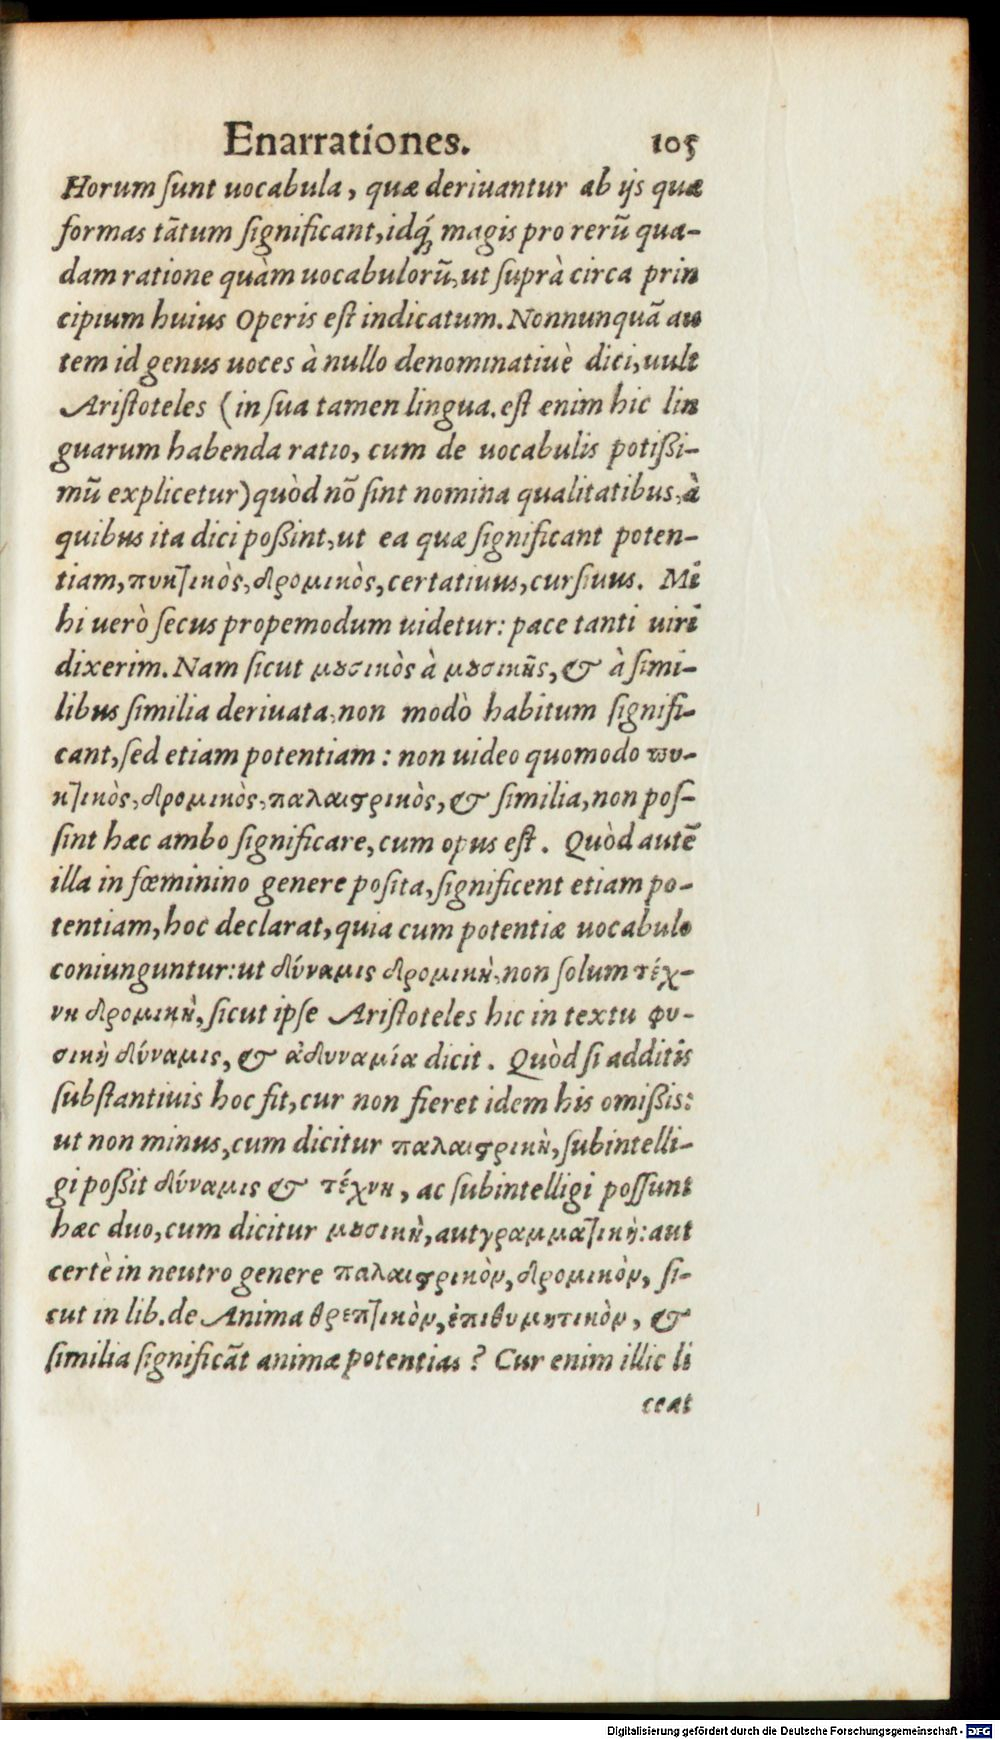 Enarrationes. 105
Horum ſunt uocabula, quæ deriuantur ab ijs quæ
formas tãtum ſignificant, idq́; magis pro rerũ qua-
dam ratione quàm uocabulorũ, ut ſuprà circa prin
cipium huius Operis eſt indicatum. Nonnunquã au
tem id genus uoces à nullo denominatiuè dici, uult
Ariſtoteles (in ſua tamen lingua. eſt enim hic lin
guarum habenda ratio, cum de uocabulis potißi-
mũ explicetur) quòd nõ ſint nomina qualitatibus, à
quibus ita dici poßint, ut ea quæ ſignificant poten-
tiam, πυκτικὸς, δρομικὸς, certatiuus, curſiuus. Mi
hi uerò ſecus propemodum uidetur: pace tanti uiri
dixerim. Nam ſicut μȣσικὸς à μȣσικῆς, & à ſimi-
libus ſimilia deriuata, non modò habitum ſignifi-
cant, ſed etiam potentiam: non uideo quomodo πυ-
κτικὸς, δρομικὸς, παλαιϛρικὸς, & ſimilia, non poſ-
ſint hæc ambo ſignificare, cum opus eſt. Quòd autẽ
illa in fœminino genere poſita, ſignificent etiam po-
tentiam, hoc declarat, quia cum potentiæ uocabulo
coniunguntur: ut δύναμις δρομικὴ, non ſolum τέχ-
νη δρομικὴ, ſicut ipſe Ariſtoteles hic in textu φυ-
σικὴ δύναμις, & ἀδυναμία dicit. Quòd ſi additis
ſubſtantiuis hoc fit, cur non fieret idem his omißis:
ut non minus, cum dicitur παλαιϛρικὴ, ſubintelli-
gi poßit δύναμις & τέχνη, ac ſubintelligi poſſunt
hæc duo, cum dicitur μȣσικὴ, aut γραμματικὴ: aut
certè in neutro genere παλαιϛρικὸν, δρομικὸν, ſi-
cut in lib. de Anima θρεπτικὸν, ἐπιθυμητικὸν, &
ſimilia ſignificãt animæ potentias? Cur enim illic li
ceat
Digitalisierung gefördert durch die Deutsche Forschungsgemeinschaft - DFG